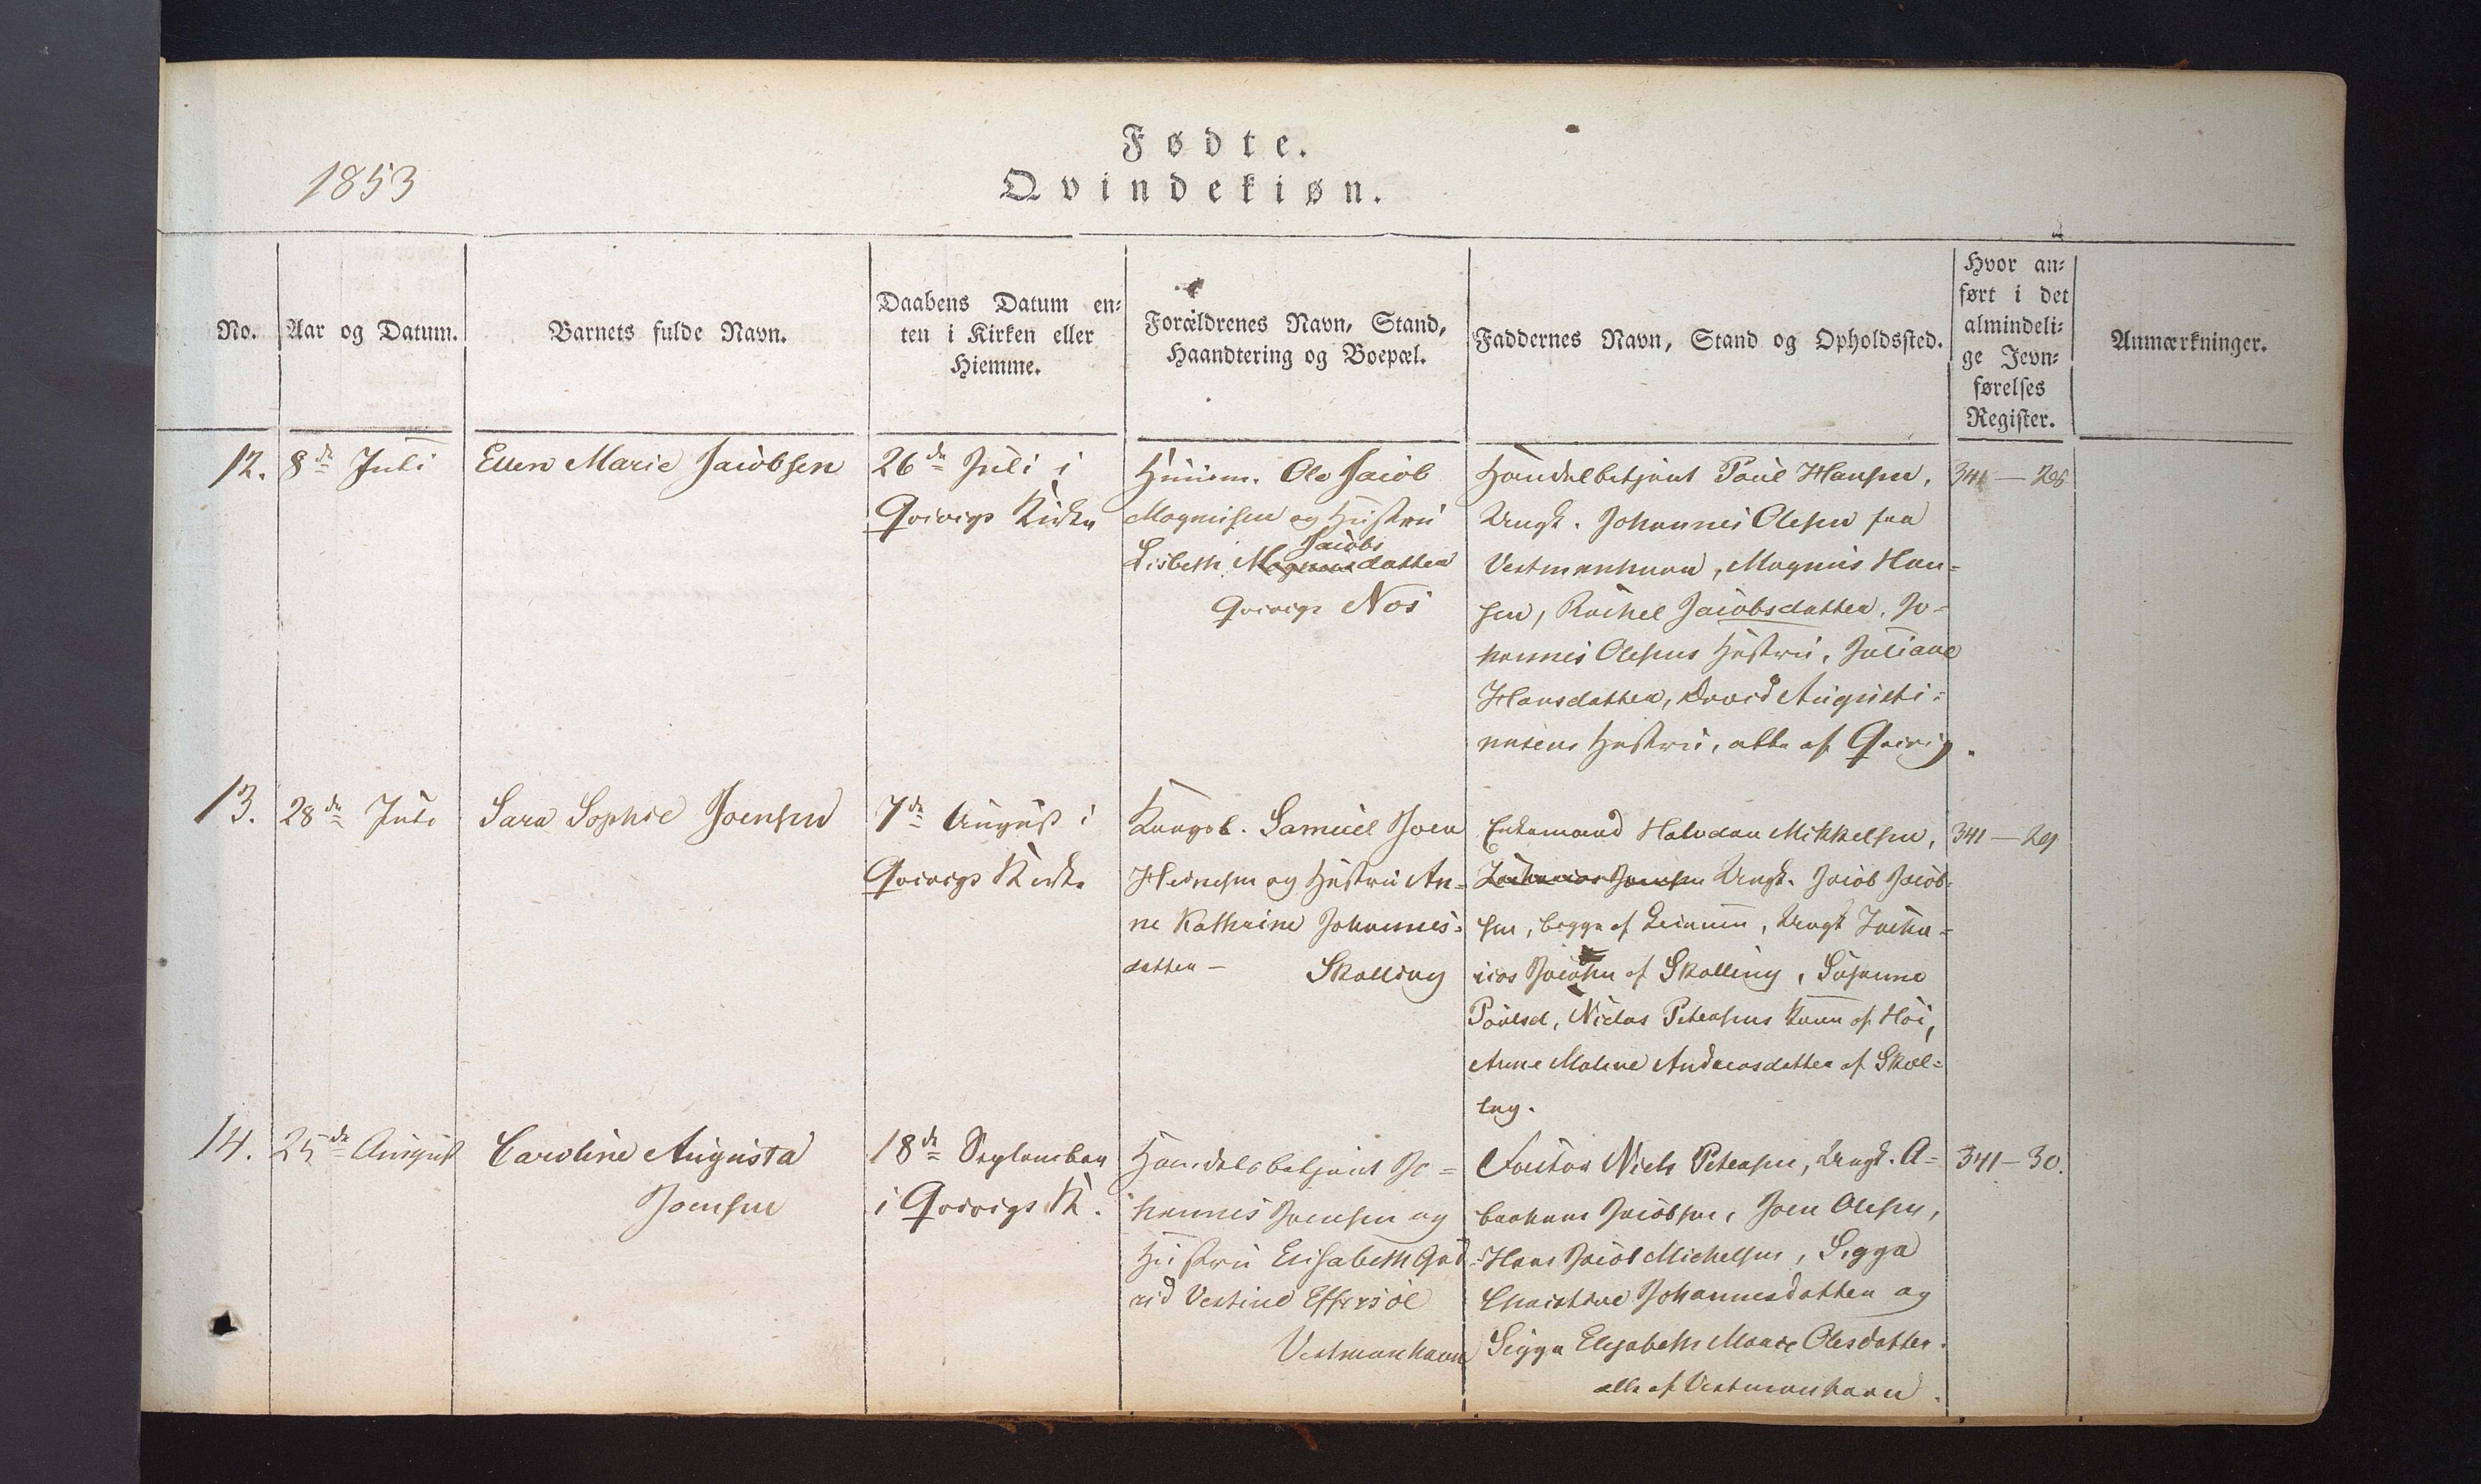 1853
Fødte.
Qvindekiøn.
No.
Aar og Datum.
Barnets fulde Navn.
Daabens Datum en-
ten i Kirken eller
Hiemme.
Forældrenes Navn, Stand,
Haandtering og Boepæl.
Faddernes Navn, Stand og Opholdssted.
Hvor an-
ført i det
almindeli-
ge Jevn-
førelses
Register.
Anmærkninger.
12.
8de Juli
Ellen Marie Jacobsen
26de Juli i
Qvivigs Kirke
Huusm. Ole Jacob
Magnusen og Hustru
Jacobs
Lisbeth Magnusdatter
Qvivigs Nos
Handelbetjent Poul Hansen,
Ungk. Johannes Olesen fra
Vestmanhavn, Magnus Han-
sen, Rachel Jacobsdatter, Jo-
hannes Olesens Hustru, Juliane
Hansdatter, David Augusti-
nusens Hustru, alle af Qvivig.
341 — 28
13.
28de Juli
Sara Sophie Joensen
7de August i
Qvivigs Kirke
Kongsb. Samuel Joen
Heinesen og Hustru An-
ne Kathrine Johannes-
datter — Skælling
Enkemand Halvdan Mikkelsen,
Zacharias Joensen Ungk. Jacob Jacob-
sen, begge af Leinum, Ungk Zacha-
rias Jacobsen af Skælling, Susanne
Poulsd, Niclas Petersens Kone af Høi,
Anne Malene Andreasdatter af Skæl-
ling.
341 — 29
14.
25de August
Caroline Augusta
Joensen
18de September
i Qvivigs K.
Handelsbetjent Jo-
hannes Joensen og
Hustru Elisabeth Gud-
rid Vestine Effersöe
Vestmanhavn
Factor Niels Petersen, Ungk. A-
braham Jacobsen, Joen Olesen,
Hans Jacob Michelsen, Sigga
Christine Johannesdatter og
Sigga Elisabeth Marie Olesdatter.
alle af Vestmanhavn.
341 — 30.